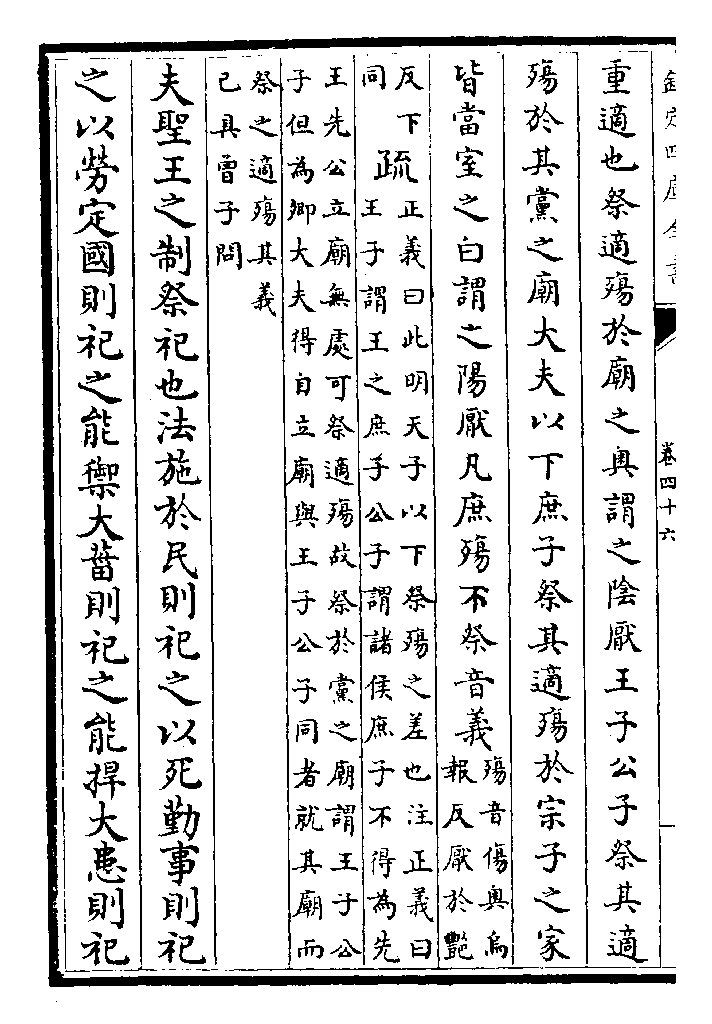 欽定四庫全書
卷四十六
重適也祭適殤於廟之奥謂之陰厭王子公子祭其適
殤於其黨之廟大夫以下庶子祭其適殤於宗子之家
皆當室之白謂之陽厭凡庶殤不祭音義
殤音傷奥烏
報反厭於豔
反下
同
疏
正義曰此明天子以下祭殤之差也注正義曰
王子謂王之庶子公子謂諸侯庶子不得為先
王先公立廟無處可祭適殤故祭於黨之廟謂王子公
子但為卿大夫得自立廟與王子公子同者就其廟而
祭之適殤其義
已具曾子問
夫聖王之制祭祀也法施於民則祀之以死勤事則祀
之以勞定國則祀之能禦大菑則祀之能捍大患則祀